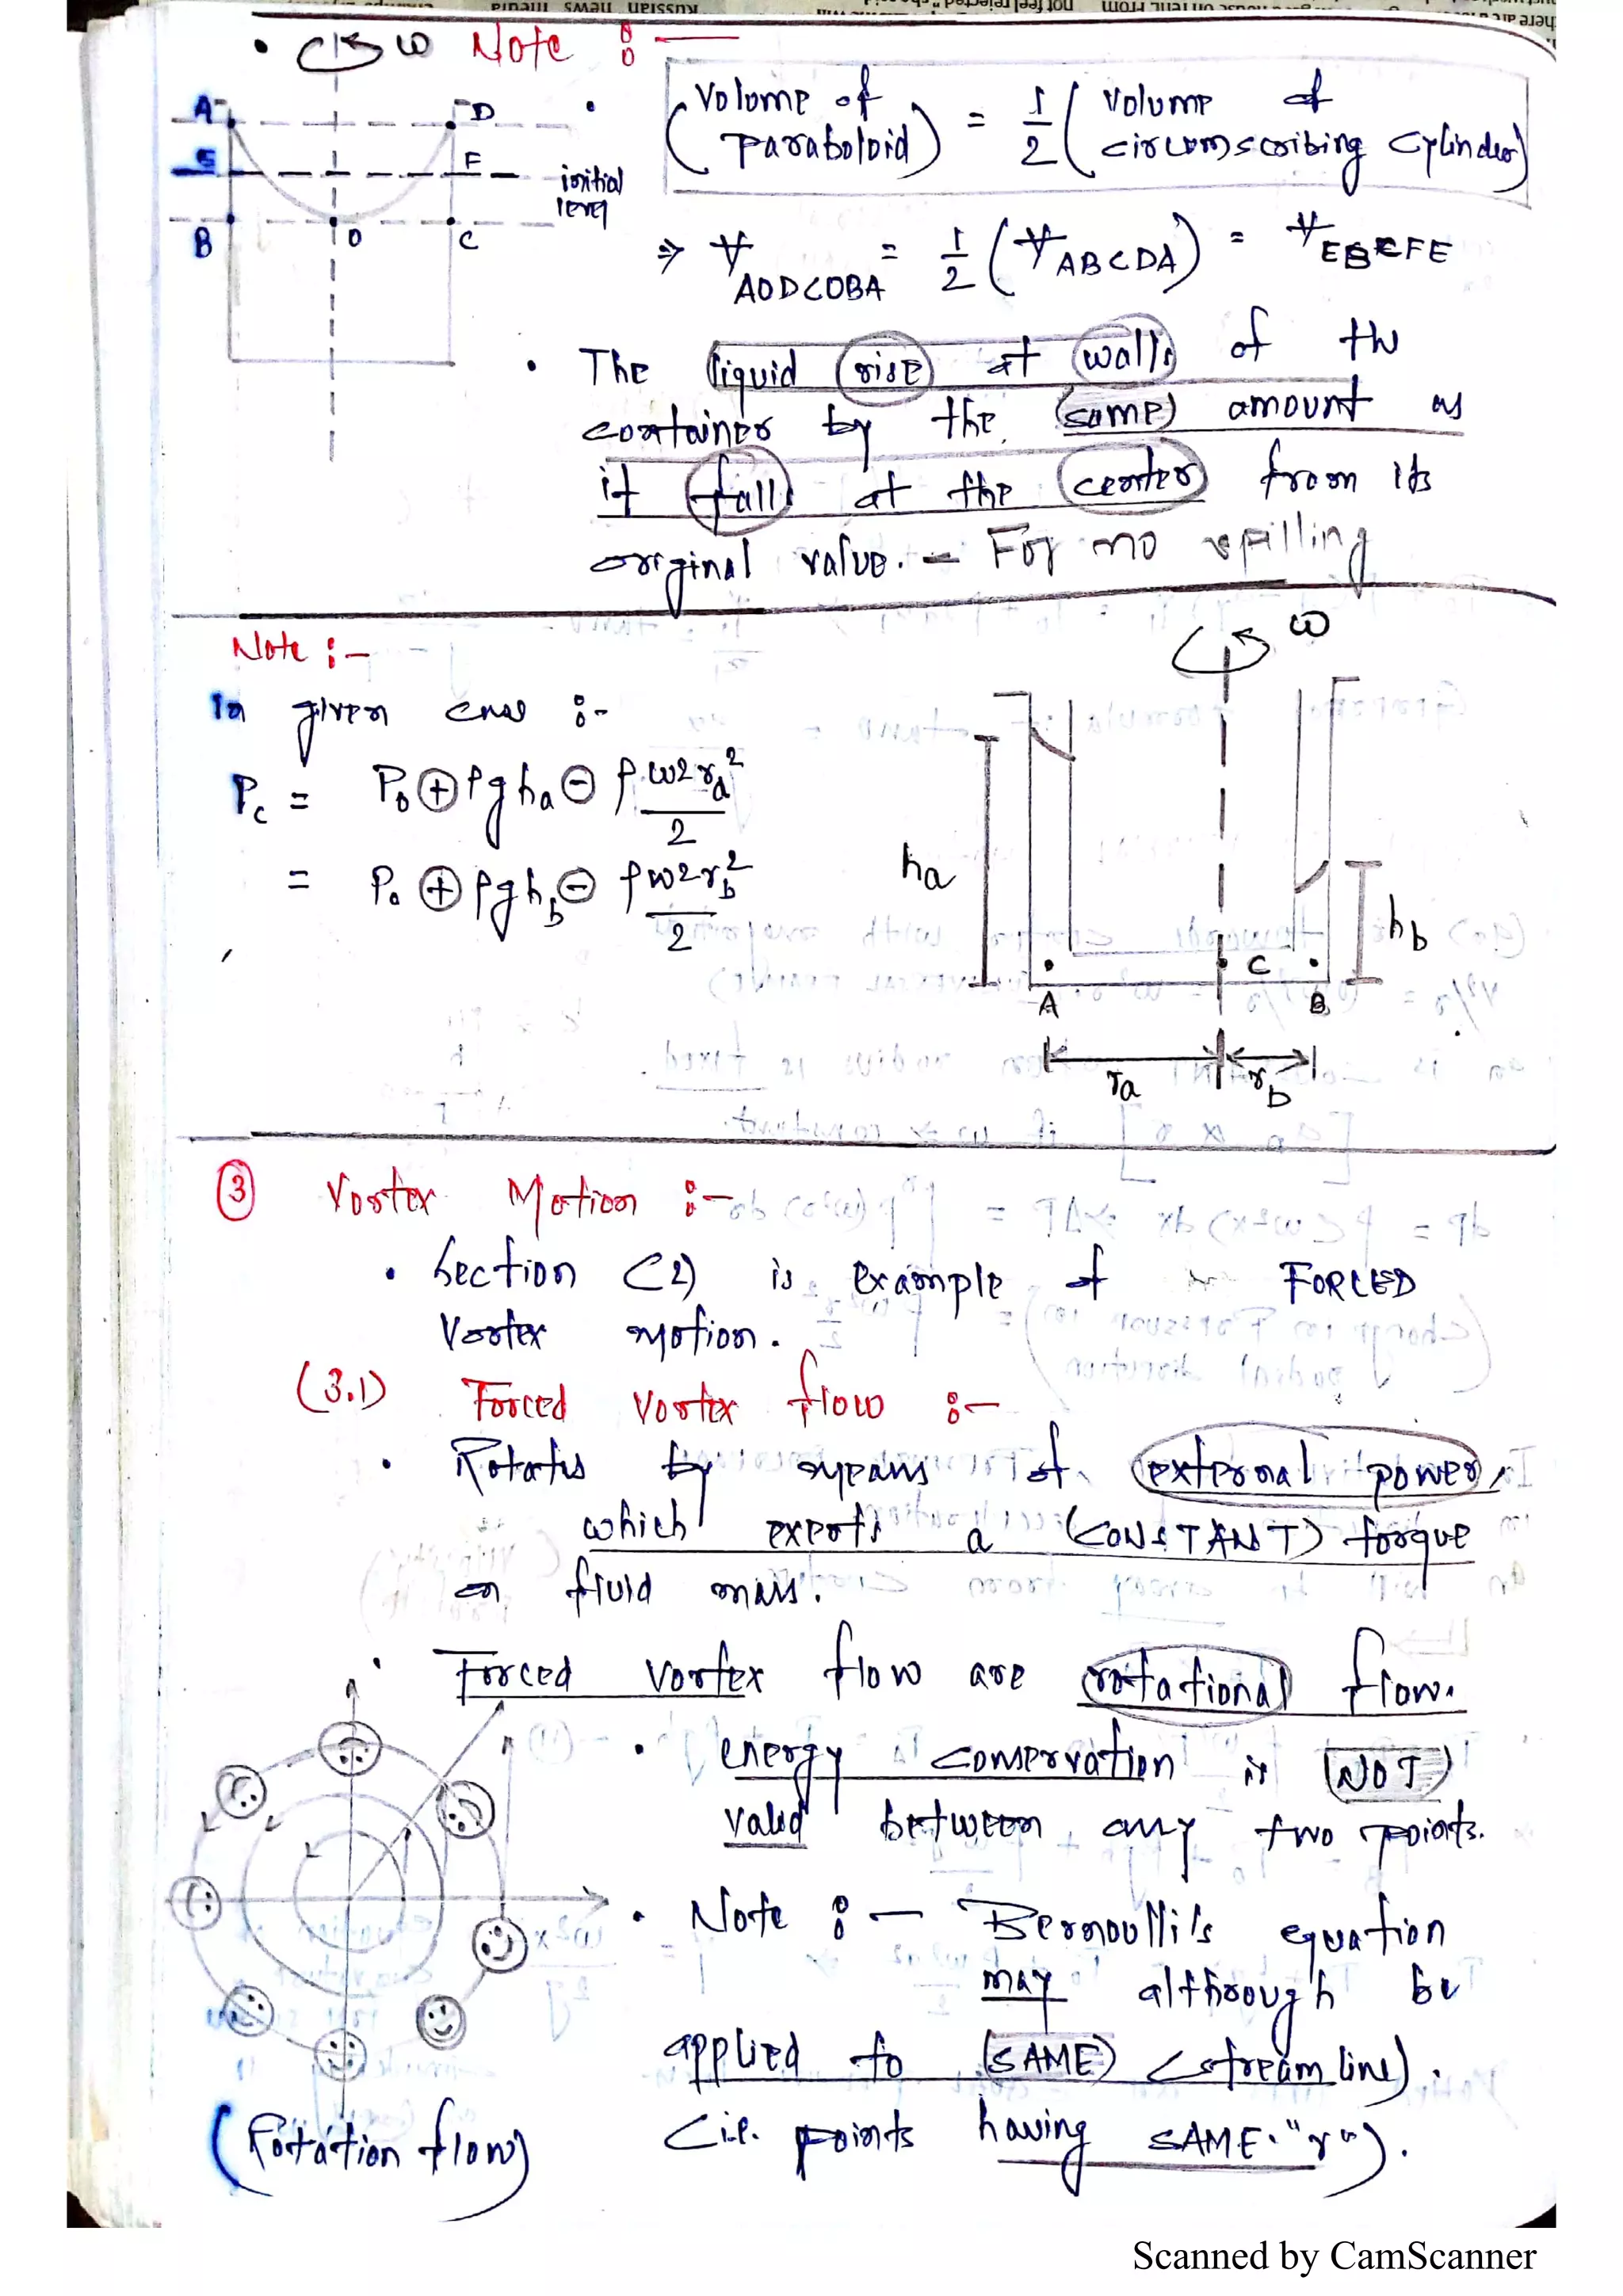 ω Note :-
A D
E F initial level
B O C
• (Volume of paraboloid) = 1/2 (Volume of circumscribing cylinder)
⇒ V AODCOBA = 1/2 (V ABCDA) = V EBCFE
• The liquid rise at walls of the
container by the same amount as
it falls at the center from its
original value. - For no spilling
Note :-
In given case :-
Pc = P₀ ⊕ ρgha ⊖ ρω²ra²/2
= P₀ ⊕ ρghb ⊖ ρω²rb²/2
ω
ha
hb
A C B
ra rb
③ Vortex Motion :-
• Section (2) is example of FORCED
Vortex motion.
(3.1) Forced Vortex flow :-
• Rotates by means of external power,
which exerts a (CONSTANT) torque
on fluid mass.
• Forced Vortex flow are rotational flow.
• energy conservation is (NOT)
valid between any two points.
• Note :- Bernoulli's equation
may althrough be
applied to (SAME) (streamline).
(i.e. points having SAME "r").
(Rotation flow)
Scanned by CamScanner